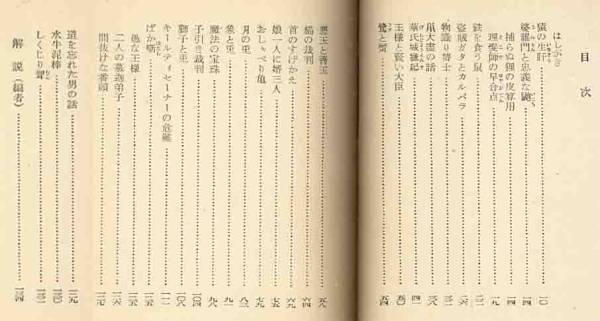 目次
はしがき
猿の生肝……一〇
婆羅門と忠義な鼬……一四
捕らぬ狸の皮算用……一四
理髪師の早合点……一九
鉄を食う鼠……二四
盗賊ガタとカルパラ……二八
物識り博士
鼠大盡の話……三八
華氏城縁起……四二
王様と賢い大臣……五〇
鷺と蟹……五四
悪王と青玉……五八
猫の裁判……六四
首のすげかえ……六九
娘一人に婿三人……七五
おしゃべり亀……七九
月の兎……八三
象と兎……九一
魔法の宝珠……九八
子引き裁判
獅子と兎……一〇八
キールティセーナーの危難……一一一
ばか噺
愚な王様……一二六
二人の墓迦弟子
間抜けな番頭……一三七
道を忘れた男の話……一三九
水牛泥棒……一四〇
しくじり聟……一四二
解説（編者）……一四四